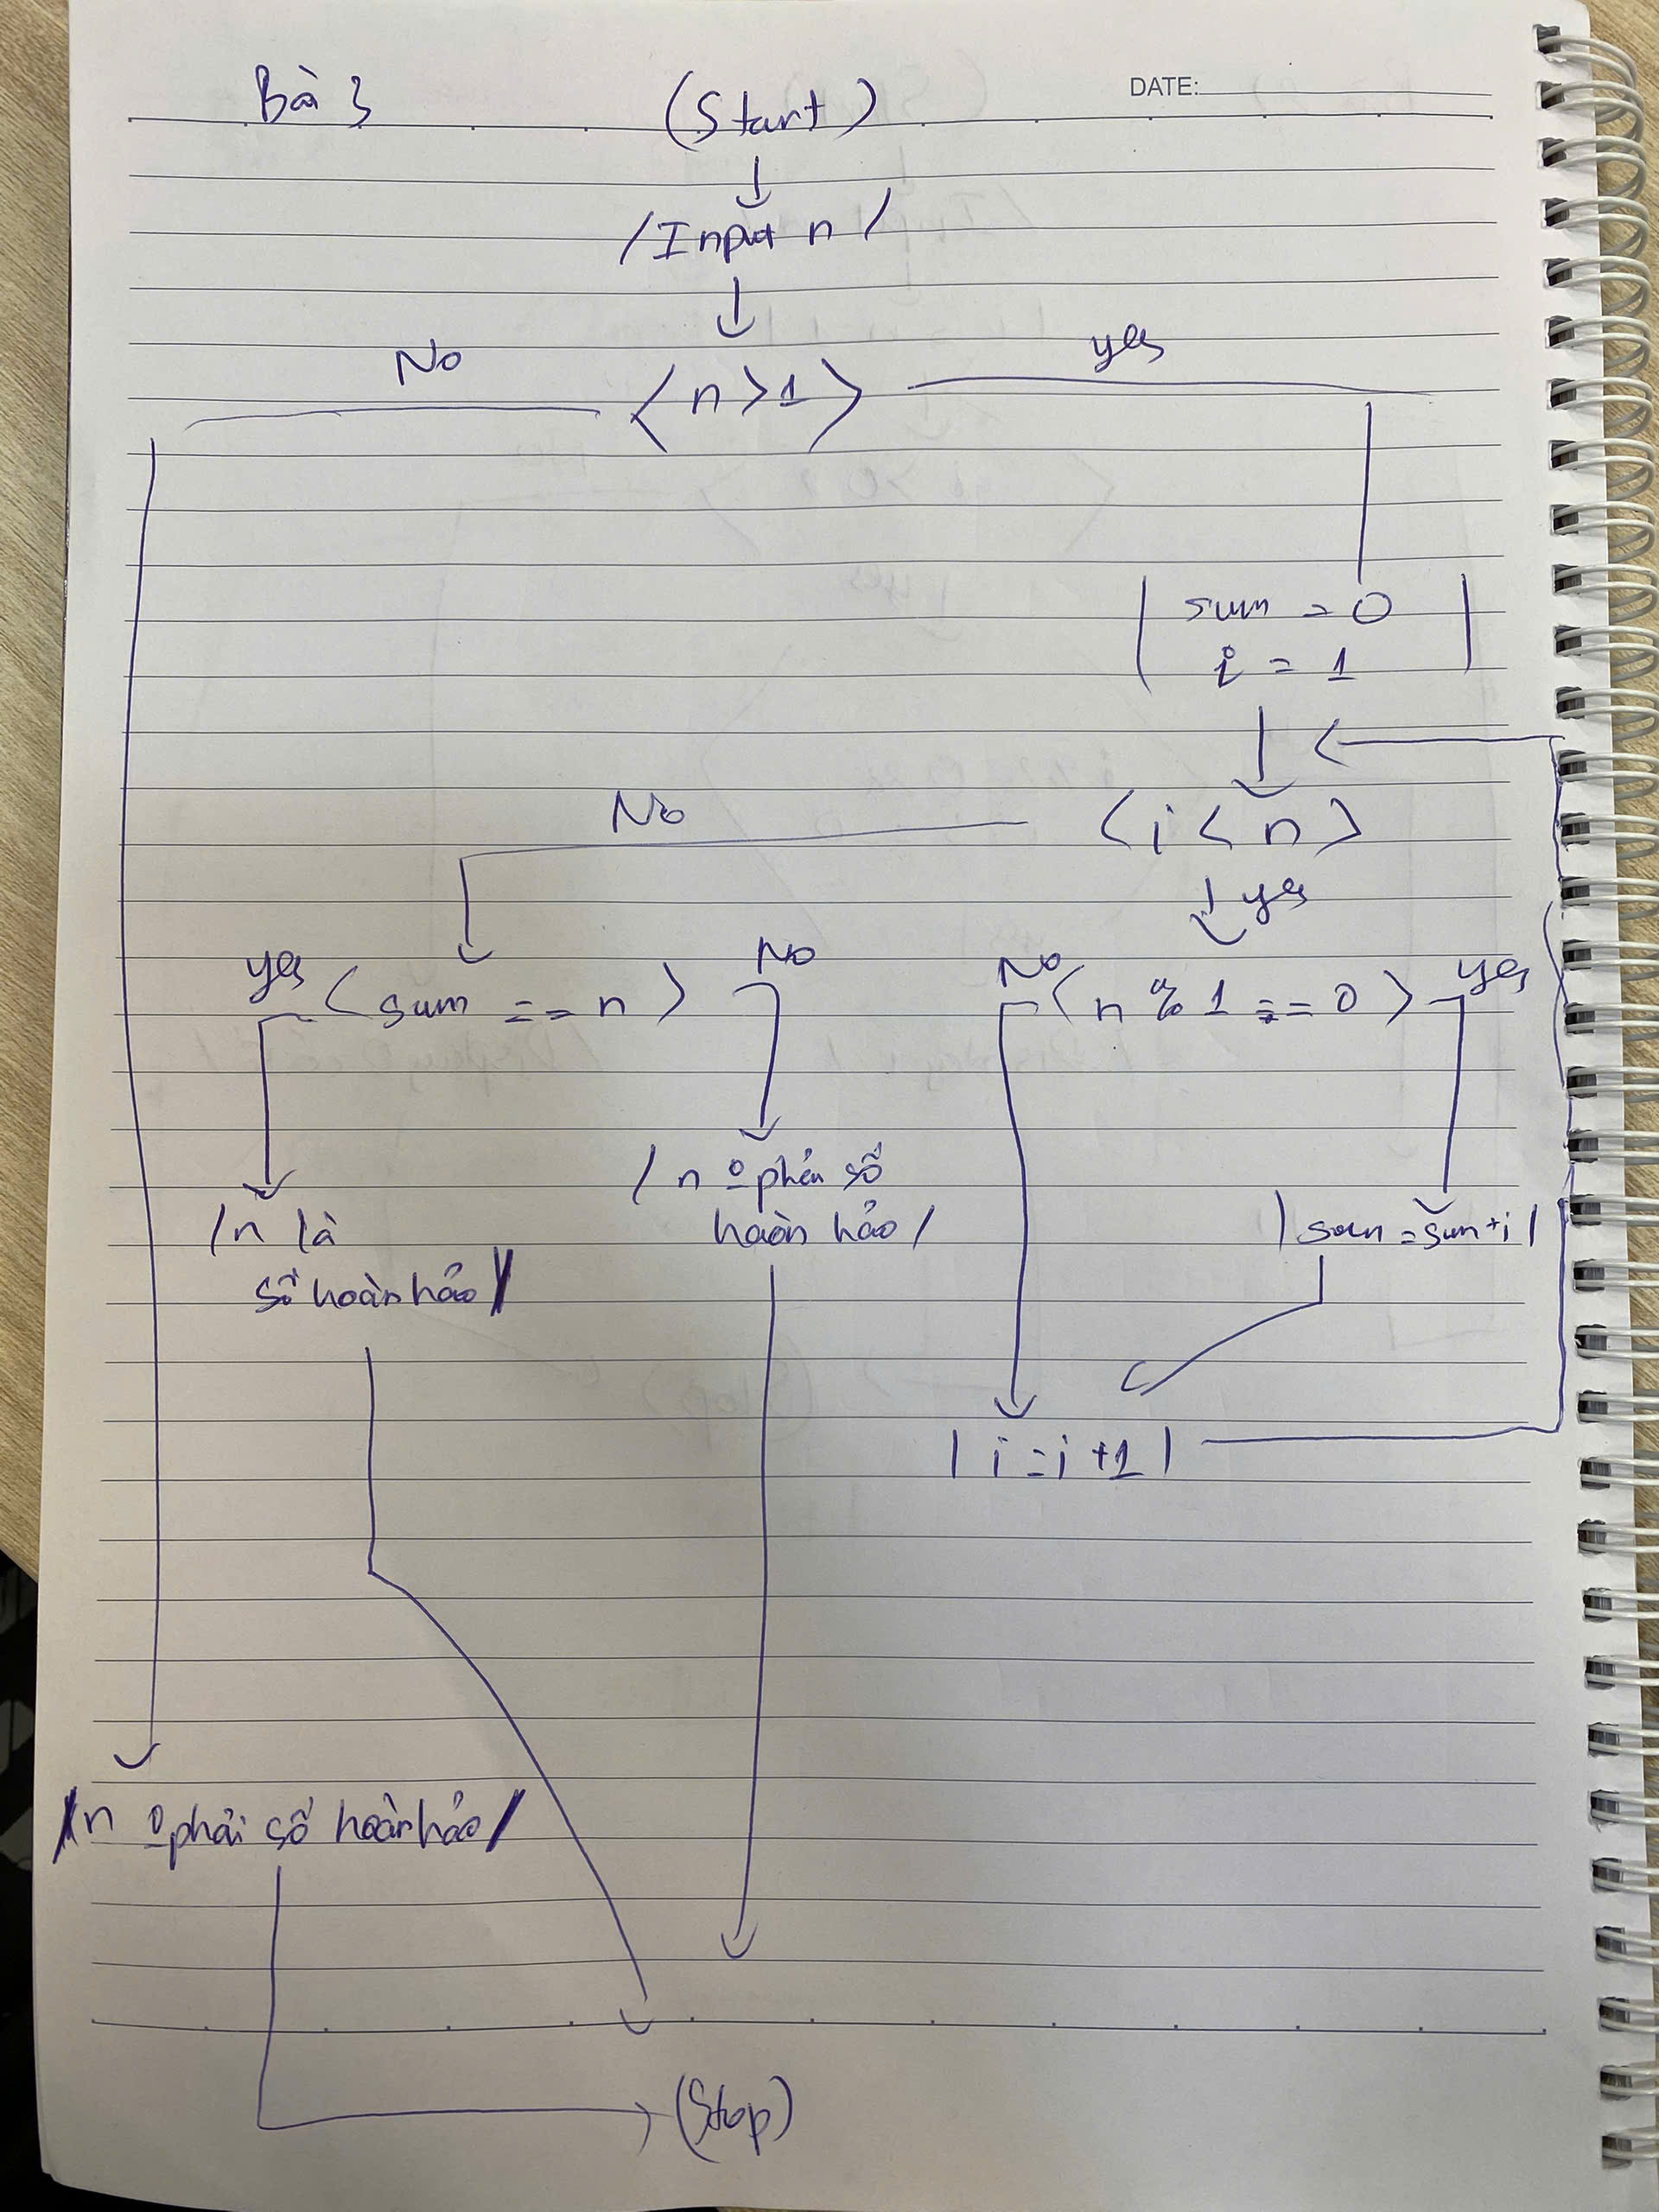 Bài 3
(Start)
DATE:
/Input n/
No
<n>1>
yes
sum = 0
i = 1
No
<i < n>
yes
yes
<sum == n>
No
No
<n % 1 == 0>
yes
/n là
số hoàn hảo/
/n o phải số
hoàn hảo/
|sum = sum+i|
|i = i+1|
/n o phải số hoàn hảo/
(Stop)